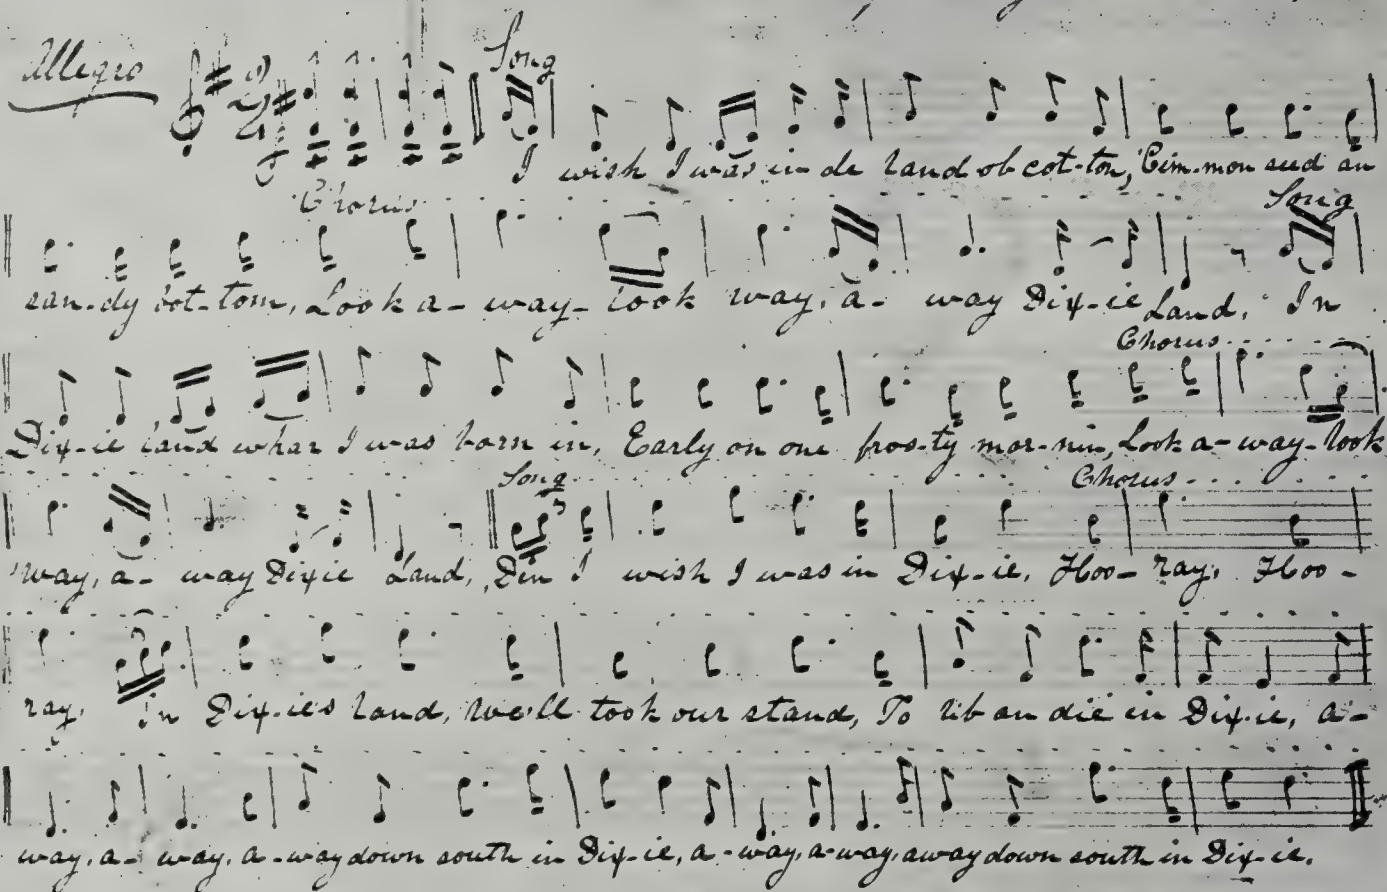 Allegro Song
I wish I was in de land ob cot-ton, Cim-mon seed an
Chorus Song
san-dy bot-tom, Look a-way-look way, a-way Dix-ie Land, In
Chorus
Dix-ie land whar I was born in, Early on one fros-ty mor-nin, Look a-way-look
Song Chorus
way, a-way Dixie Land, Den I wish I was in Dix-ie, Hoo-ray, Hoo-
ray, In Dix-ie's land, we'll took our stand, To lib an die in Dix-ie, a-
way, a-way, a-way down south in Dix-ie, a-way, a-way, away down south in Dix-ie.